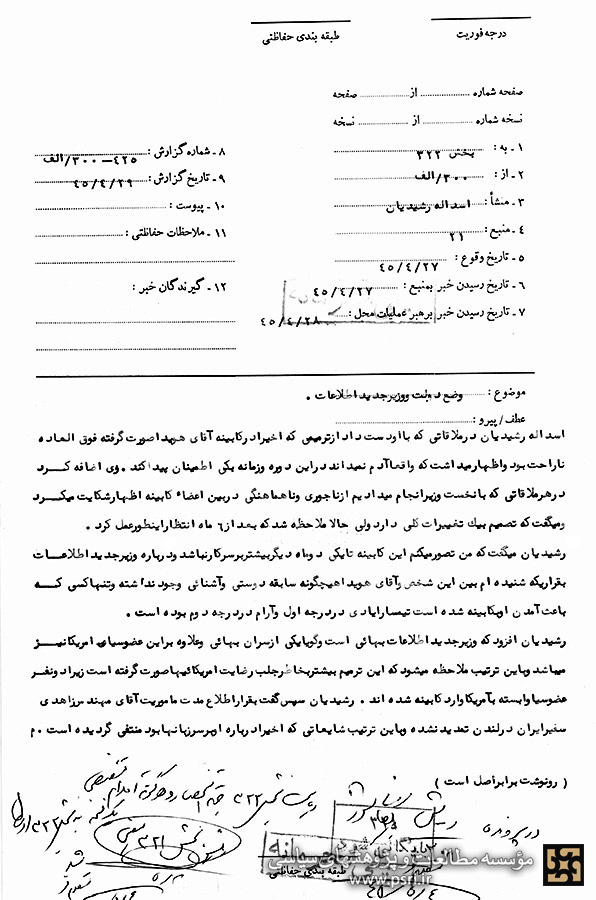 درجه فوریت
طبقه بندی حفاظتی
صفحه شماره ........ از ........ صفحه
نسخه شماره ........ از ........ نسخه
۱ - به : بخش ۳۲۲
۲ - از : ۳۰۰/الف
۳ - منشأ : اسداله رشیدیان
۴ - منبع : ۲۱
۵ - تاریخ وقوع : ۴۵/۴/۲۷
۶ - تاریخ رسیدن خبر بمنبع : ۴۵/۴/۲۷
۷ - تاریخ رسیدن خبر برهبر عملیات محل : ۴۵/۴/۲۸
۸ - شماره گزارش : ۴۲۵-۳۰۰/الف
۹ - تاریخ گزارش : ۴۵/۴/۲۹
۱۰ - پیوست :
۱۱ - ملاحظات حفاظتی :
۱۲ - گیرندگان خبر :
موضوع : وضع دولت ووزیرجدید اطلاعات .
عطف / پیرو :
اسداله رشیدیان درملاقاتی که بااودست داد ازترمیمی که اخیراد رکابینه آقای هویدا صورت گرفته فوق العاده
ناراحت بود واظهارمیداشت که واقعا آدم نمیداند دراین دوره وزمانه بکی اطمینان پیداکند . وی اضافه کرد
درهرملاقاتی که بانخست وزیرانجام میدادیم ازناجوری وناهماهنگی دربین اعضاء کابینه اظهارشکایت میکرد
ومیگفت که تصمیم بیک تغییرات کلی دارد ولی حالا ملاحظه شد که بعد از ۶ ماه انتظاراینطورعمل کرد .
رشیدیان میگفت که من تصورمیکنم این کابینه تایکی دوماه دیگربیشتربرسرکارنباشد ودرباره وزیرجدید اطلاعات
بقراریکه شنیده ام بین این شخص وآقای هویدا هیچگونه سابقه دوستی وآشنائی وجود نداشته وتنهاکسی که
باعث آمدن اوبکابینه شده است تیسارایادی دردرجه اول وآرام دردرجه دوم بوده است .
رشیدیان افزود که وزیرجدید اطلاعات بهائی است وگویایکی ازسران بهائی وعلاوه براین عضوسیای امریکانیز
میباشد وباین ترتیب ملاحظه میشود که این ترمیم بیشتربخاطرجلب رضایت امریکائیها صورت گرفته است زیرادونفر
عضوسیا وابسته بآمریکا وارد کابینه شده اند . رشیدیان سپس گفت بقراراطلاع مدت ماموریت آقای مهندس زاهدی
سفیرایران درلندن تمدید نشده وباین ترتیب شایعاتی که اخیرادرباره اوبرسرزبانهابود منتفی گردیده است . م
( رونوشت برابراصل است )
در پرونده
بایگانی شود
طبقه بندی حفاظتی
مؤسسه مطالعات و پژوهشهای سیاسی
www.psri.ir